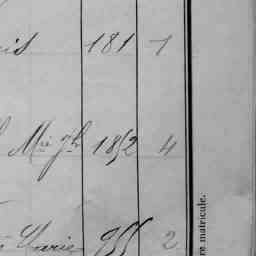 is 181 1
Mie Jh 1852 4
Marie 955 2
re matricule.